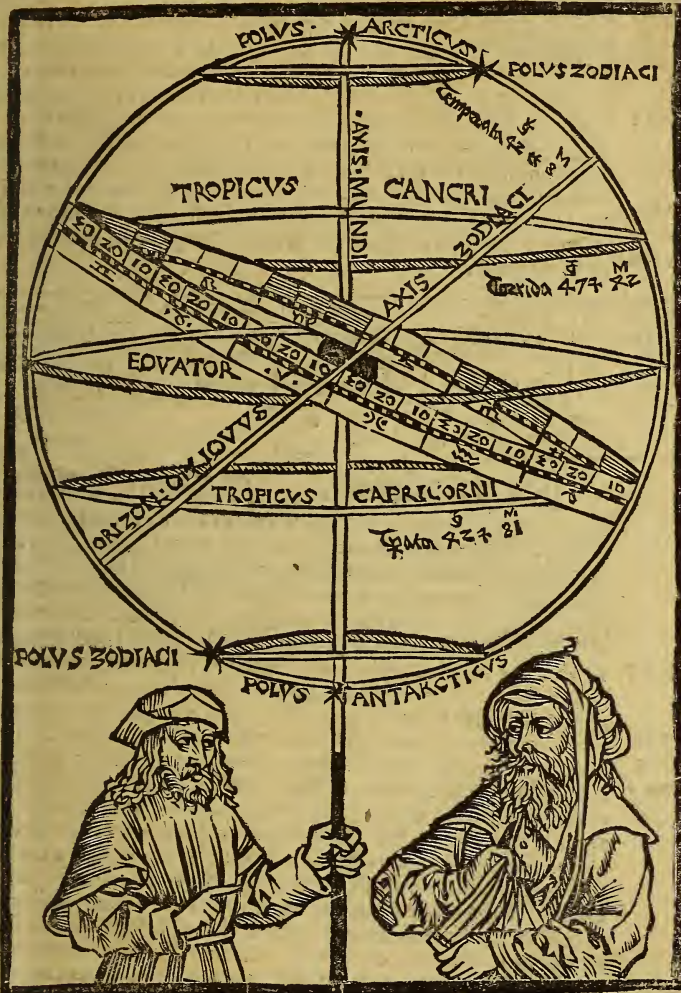 POLVS · ARCTICVS
POLVS ZODIACI
· AXIS · MUNDI
G M
TROPICVS CANCRI
AXIS ZODIACI
G M
Torrida 47 + 22
30 20 10 30 20 10 30 20 10 30 20 10 30 20 10 30 20 10
EQVATOR
ORIZON · OBLIQVVS
TROPICVS CAPRICORNI
G M
POLVS ZODIACI
POLVS ANTARCTICVS